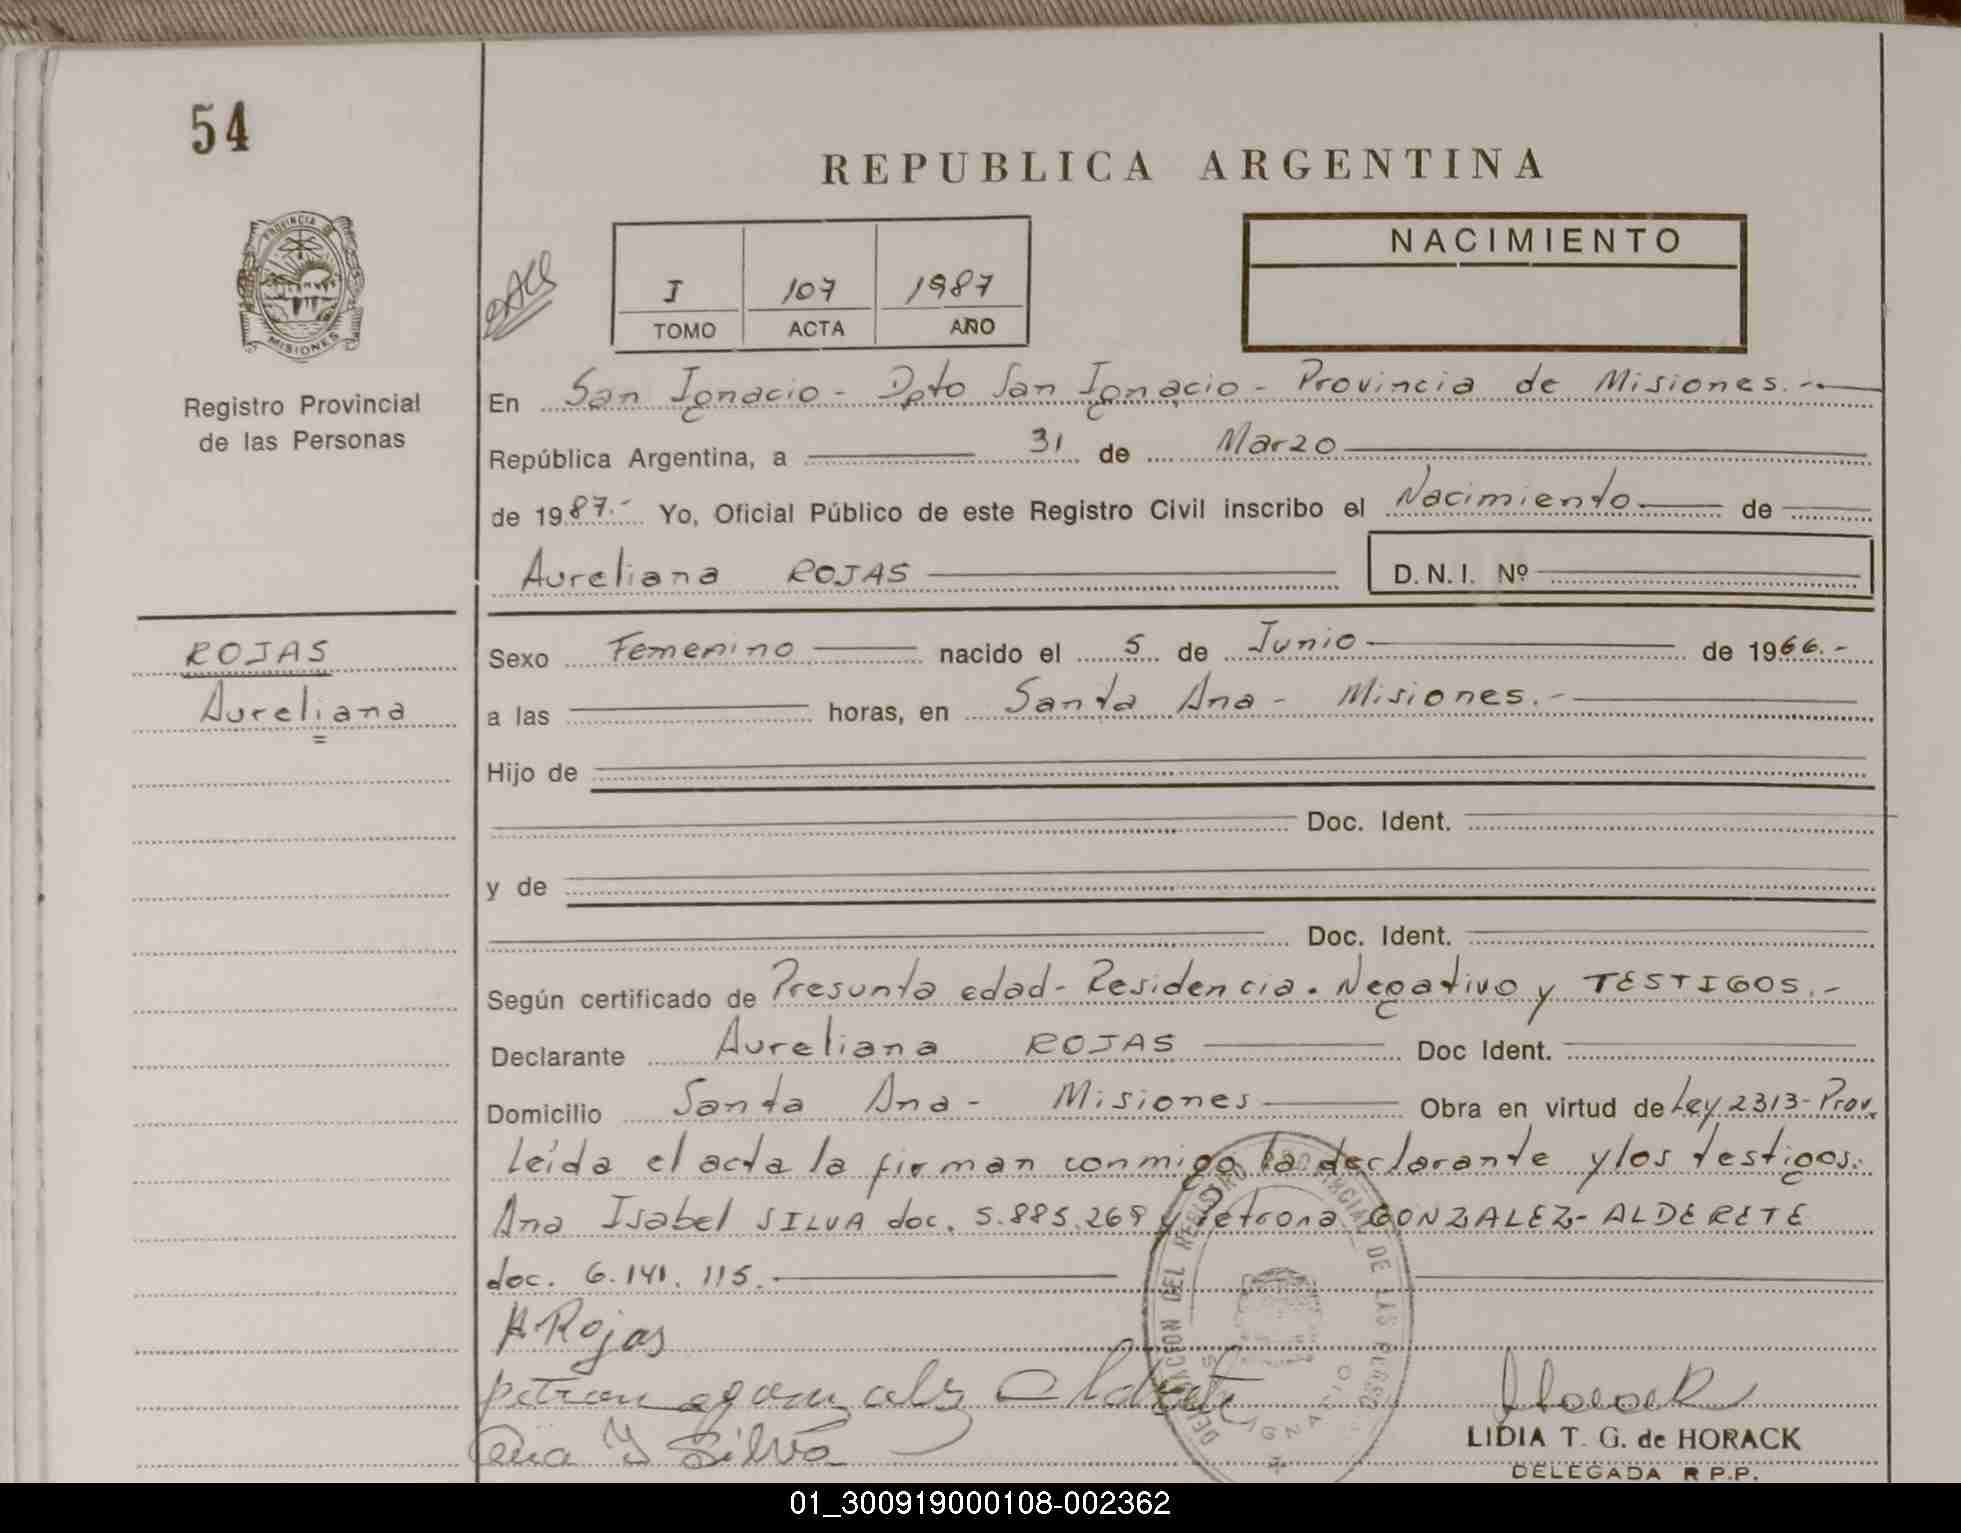 54
REPUBLICA ARGENTINA
PROVINCIA D
MISIONES
Registro Provincial
de las Personas
I 107 1987
TOMO ACTA AÑO
NACIMIENTO
En San Ignacio - Dpto San Ignacio - Provincia de Misiones.-
República Argentina, a 31 de Marzo
de 1987.- Yo, Oficial Público de este Registro Civil inscribo el Nacimiento de
Aureliana ROJAS D.N.I. Nº
ROJAS
Aureliana
Sexo Femenino nacido el 5 de Junio de 1966.-
a las horas, en Santa Ana - Misiones.-
Hijo de
Doc. Ident.
y de
Doc. Ident.
Según certificado de Presunta edad - Residencia. Negativo y TESTIGOS.-
Declarante Aureliana ROJAS Doc Ident.
Domicilio Santa Ana - Misiones Obra en virtud de Ley 2313-Prov.
Leída el acta la firman conmigo la declarante y los testigos.
Ana Isabel SILVA doc. 5.885.269 y Petrona GONZALEZ-ALDERETE
doc. 6.141.115.
A. Rojas
petrona gonzalz Alderete
Ana Y Silva
DELEGACION DEL REGISTRO PROVINCIAL DE LAS PERSO
Horack
LIDIA T. G. de HORACK
DELEGADA R P.P.
01_300919000108-002362